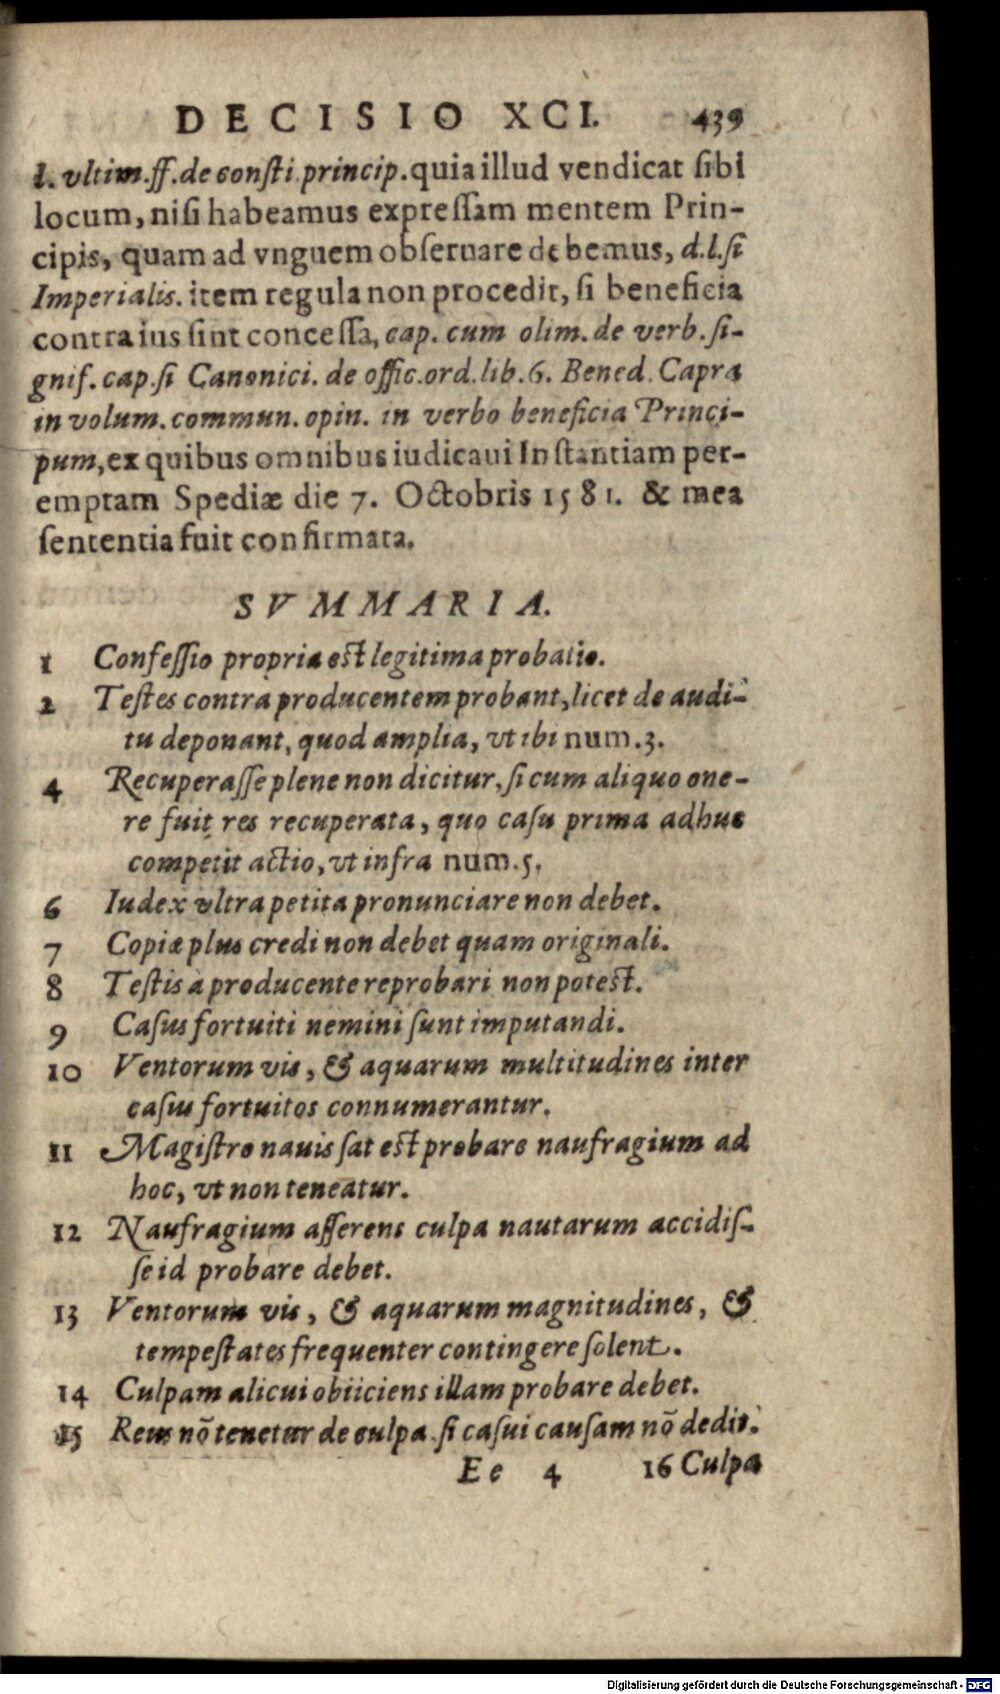 DECISIO XCI. 439
l. vltim. ff. de consti. princip. quia illud vendicat sibi
locum, nisi habeamus expressam mentem Prin-
cipis, quam ad vnguem obseruare debemus, d. l. si
Imperialis. item regula non procedit, si beneficia
contra ius sint concessa, cap. cum olim. de verb. si-
gnif. cap. si Canonici. de offic. ord. lib. 6. Bened. Capra
in volum. commun. opin. in verbo beneficia Princi-
pum, ex quibus omnibus iudicaui Instantiam per-
emptam Spediæ die 7. Octobris 1581. & mea
sententia fuit confirmata.
SVMMARIA.
1 Confessio propria est legitima probatio.
2 Testes contra producentem probant, licet de audi-
tu deponant, quod amplia, vt ibi num. 3.
4 Recuperasse plene non dicitur, si cum aliquo one-
re fuit res recuperata, quo casu prima adhuc
competit actio, vt infra num. 5.
6 Iudex vltra petita pronunciare non debet.
7 Copiæ plus credi non debet quam originali.
8 Testis à producente reprobari non potest.
9 Casus fortuiti nemini sunt imputandi.
10 Ventorum vis, & aquarum multitudines inter
casus fortuitos connumerantur.
11 Magistro nauis sat est probare naufragium ad
hoc, vt non teneatur.
12 Naufragium asserens culpa nautarum accidis-
se id probare debet.
13 Ventorum vis, & aquarum magnitudines, &
tempestates frequenter contingere solent.
14 Culpam alicui obiiciens illam probare debet.
15 Reus nõ tenetur de culpa si casui causam nõ dedit.
Ee 4 16 Culpa
Digitalisierung gefördert durch die Deutsche Forschungsgemeinschaft - DFG